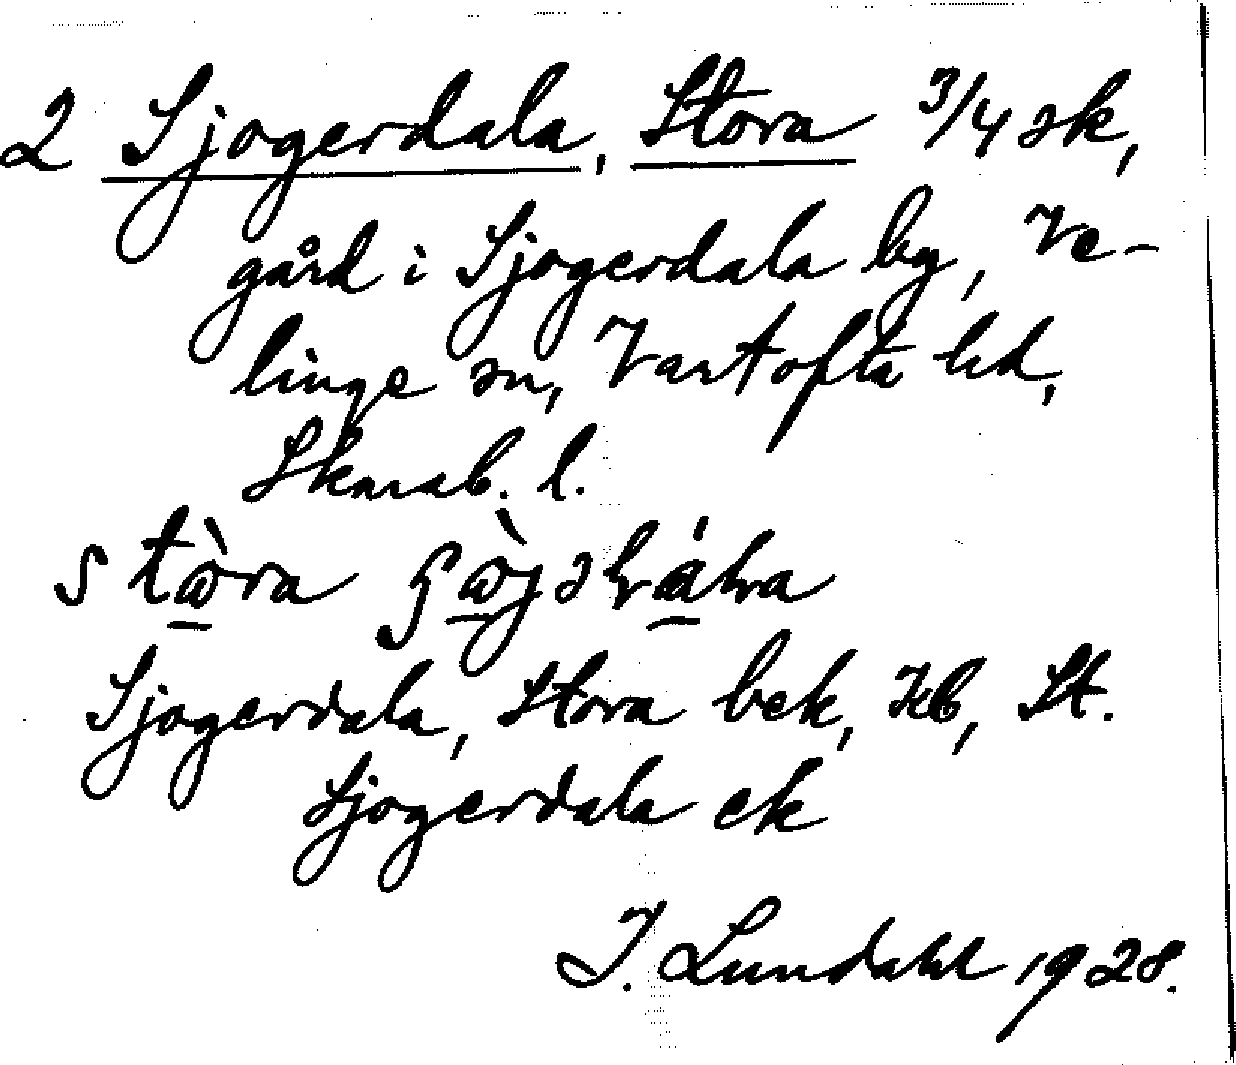 2 Sjogerdala, Stora 3/4 sk,
gård i Sjogerdala by, Ve-
linge sn, Vartofta hd,
Skarab. l.
Sjogerdala, Stora bek, Kb, St.
Sjogerdala ek
I. Lundahl 1928.